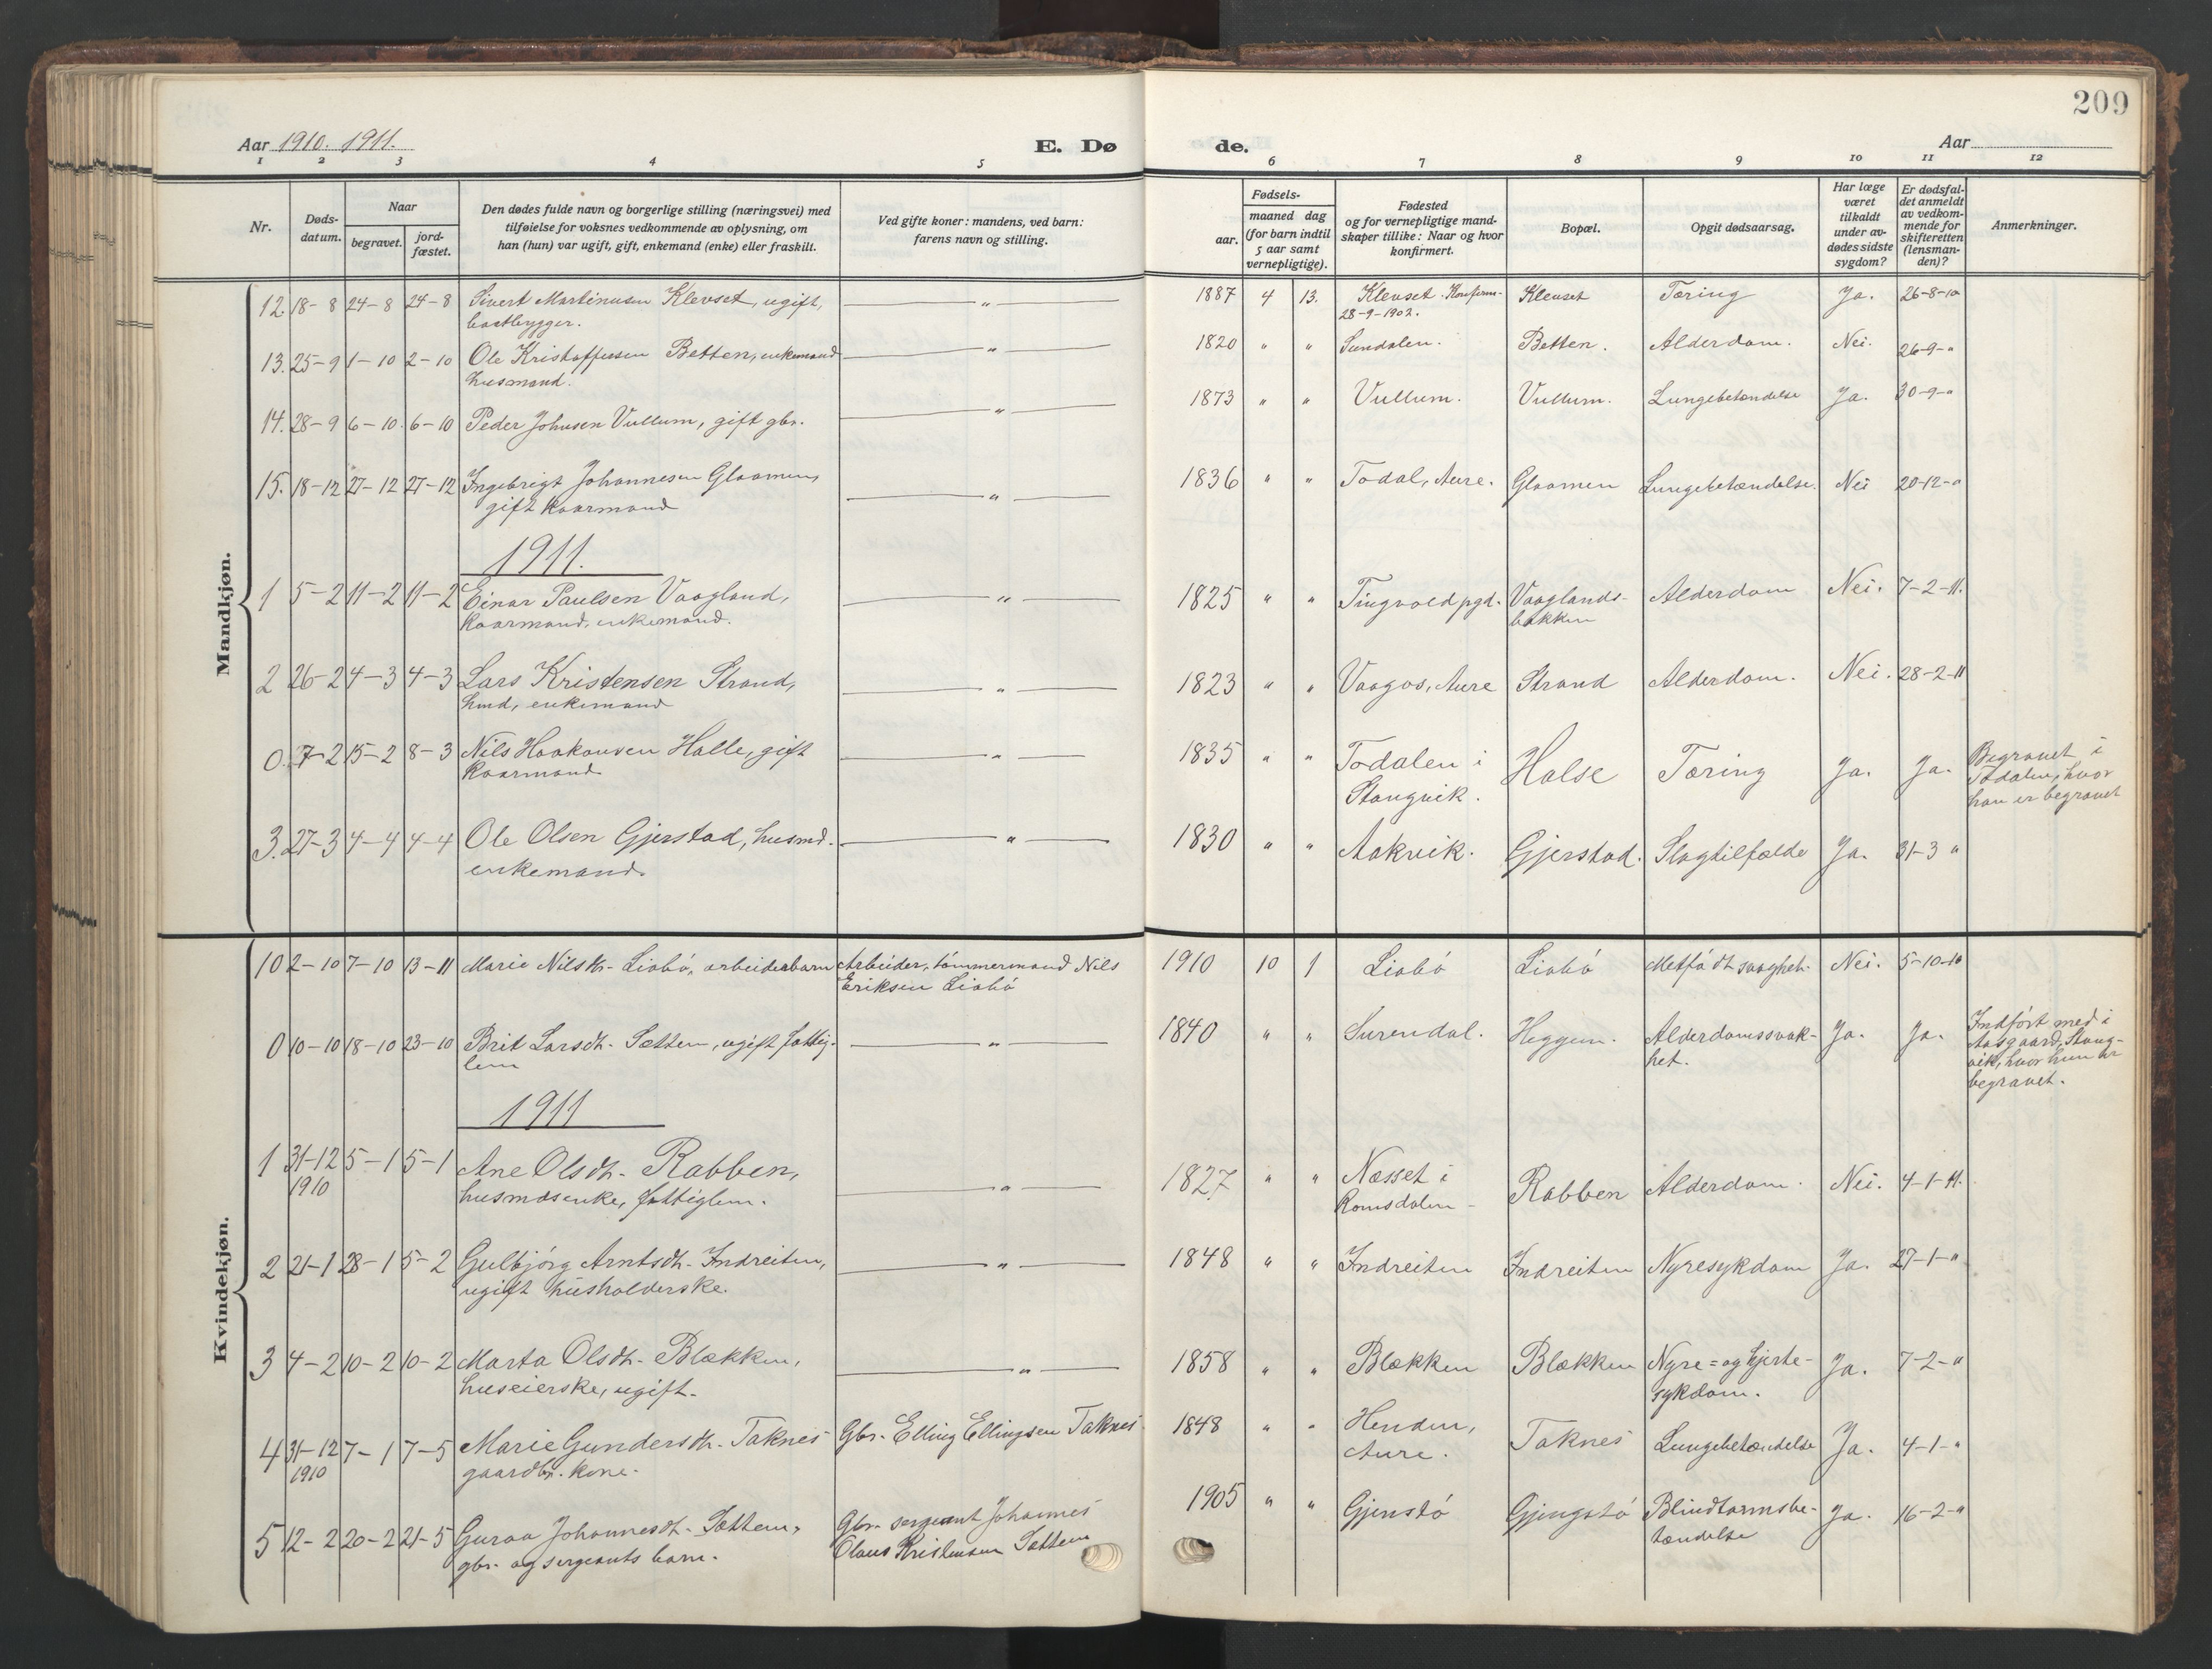 209
Aar 1910. 1911.
E. Dø
de.
Aar
1 2 3 4 5 6 7 8 9 10 11 12
Nr.
Døds-
datum.
Naar
begravet.
jord-
fæstet.
Den dødes fulde navn og borgerlige stilling (næringsvei) med
tilføielse for voksnes vedkommende av oplysning, om
han (hun) var ugift, gift, enkemand (enke) eller fraskilt.
Ved gifte koner: mandens, ved barn:
farens navn og stilling.
Fødsels-
aar.
maaned dag
(for barn indtil
5 aar samt
vernepligtige).
Fødested
og for vernepligtige mand-
skaper tillike: Naar og hvor
konfirmert.
Bopæl.
Opgit dødsaarsag.
Har læge
været
tilkaldt
under av-
dødes sidste
sygdom?
Er dødsfal-
det anmeldt
av vedkom-
mende for
skifteretten
(lensman-
den)?
Anmerkninger.
Mandkjøn.
12. 18-8 24-8 24-8 Sivert Martinusen Klevset, ugift, — " — 1887 4 13. Klevset. Konfirm- Klevset Tæring Ja. 26-8-10
baatbygger. 28-9-1902.
13. 25-9 1-10 2-10 Ole Kristoffersen Betten, enkemand — " — 1820 " " Sundalen. Betten. Alderdom. Nei. 26-9-"
husmand.
14. 28-9 6-10 6-10 Peder Johnsen Vullum, gift gbr. — " — 1873 " " Vullum. Vullum. Lungebetændelse Ja. 30-9-"
15. 18-12 27-12 27-12 Ingebrigt Johannesen Glaamen, — " — 1836 " " Todal, Aure. Glaamen Lungebetændelse. Nei 20-12-"
gift kaarmand
1911.
1 5-2 11-2 11-2 Einar Paulsen Vaagland, — " — 1825 " " Tingvold pgd. Vaaglands- Alderdom Nei. 7-2-11.
kaarmand, enkemand. bakken
2 26-2 4-3 4-3 Lars Kristensen Strand, — " — 1823 " " Vaagos, Aure Strand Alderdom. Nei. 28-2-11
hmd, enkemand
0. 7-2 15-2 8-3 Nils Haakonsen Halle, gift — " — 1835 " " Todalen i Halse Tæring Ja. Ja. Begravet i
kaarmand Stangvik. Todalen, hvor
han er begravet
3. 27-3 4-4 4-4 Ole Olsen Gjerstad, husmd. — " — 1830 " " Aakvik. Gjerstad. Slagtilfælde Ja. 31-3 "
enkemand.
Kvindekjøn.
10 2-10 7-10 13-11 Marie Nilsdt. Liabø, arbeiderbarn Arbeider, tømmermand Nils 1910 10 1 Liabø Liabø Metfødt svaghet. Nei. 5-10-10
Eriksen Liabø
0 10-10 18-10 23-10 Brit Larsdt. Sættem, ugift fattig- — " — 1840 " " Surendal. Heggem. Alderdomssvak- Ja. Ja. Indført med i
lem het. Aasgaard, Stang-
vik, hvor hun er
begravet.
1911
1 31-12 5-1 5-1 Ane Olsdt. Rabben, — " — 1827 " " Næsset i Rabben Alderdom. Nei. 4-1-11.
1910 husmdsenke, fattiglem. Romsdalen
2 21-1 28-1 5-2 Gulbjørg Arntsdt. Indreiten, — " — 1848 " " Indreiten Indreiten Nyresykdom Ja. 27-1-"
ugift husholderske.
3 4-2 10-2 10-2 Marta Olsdt. Blækken, — " — 1858 " " Blækken Blækken Nyre= og hjerte- Ja. 7-2-"
huseierske, ugift. sykdom.
4 31-12 7-1 7-5 Marie Gundersdt. Taknes Gbr. Elling Ellingsen Taknes 1848 " " Henden, Taknes Lungebetændelse Ja. 4-1-"
1910 gaardbr. kone. Aure.
5 12-2 20-2 21-5 Guraa Johannesdt. Sættem, Gbr. sergeant Johannes 1905 " " Gjenstø Gjengstø Blindtarmsbe- Ja. 16-2-"
gbr. og sergeants barn. Olaus Kristensen Sættem tændelse